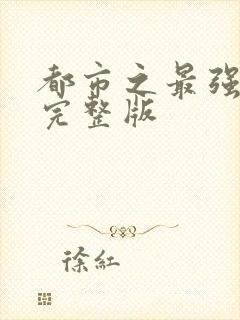 都市之最强
完整版
徐红